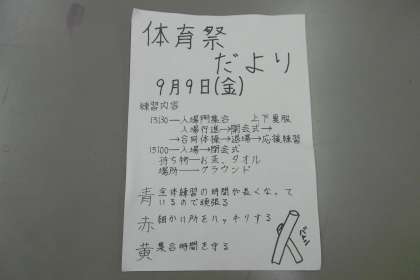 体育祭
だより
9月9日(金)
練習内容
13:30―入場門集合 上下夏服
入場行進→開会式→
→合同体操→退場→応援練習
15:00―入場→閉会式
持ち物―お茶、タオル
場所―グラウンド
青 全体練習の時間が長くなって
いるので頑張る
赤 細かい所をハッキリする
黄 集合時間を守る